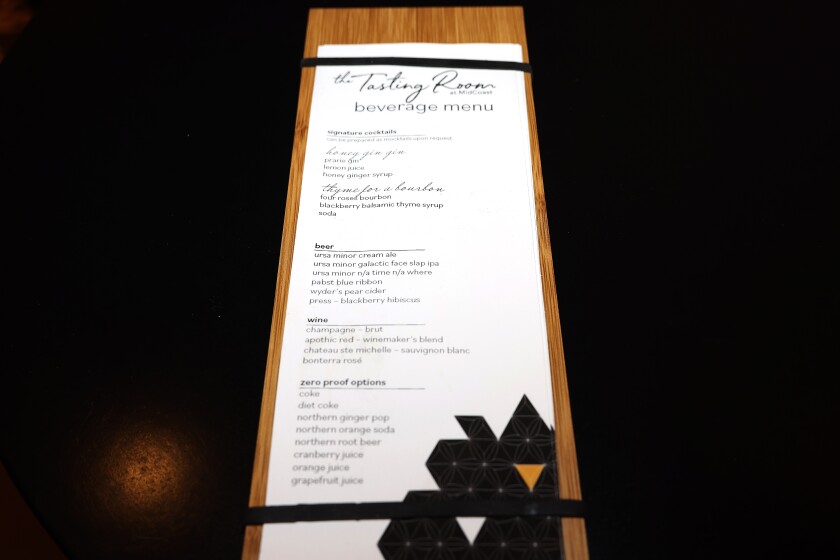 the Tasting Room
at MidCoast
beverage menu
signature cocktails
can be prepared as mocktails upon request
honey gin gin
prairie gin
lemon juice
honey ginger syrup
thyme for a bourbon
four roses bourbon
blackberry balsamic thyme syrup
soda
beer
ursa minor cream ale
ursa minor galactic face slap ipa
ursa minor n/a time n/a where
pabst blue ribbon
wyder's pear cider
press – blackberry hibiscus
wine
champagne – brut
apothic red – winemaker's blend
chateau ste michelle – sauvignon blanc
bonterra rosé
zero proof options
coke
diet coke
northern ginger pop
northern orange soda
northern root beer
cranberry juice
orange juice
grapefruit juice